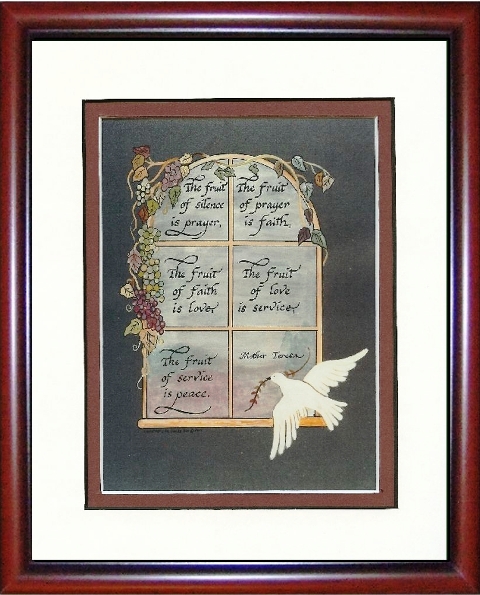 The fruit
of silence
is prayer.
The fruit
of prayer
is faith.
The fruit
of faith
is love
The fruit
of love
is service
The fruit
of service
is peace.
Mother Teresa